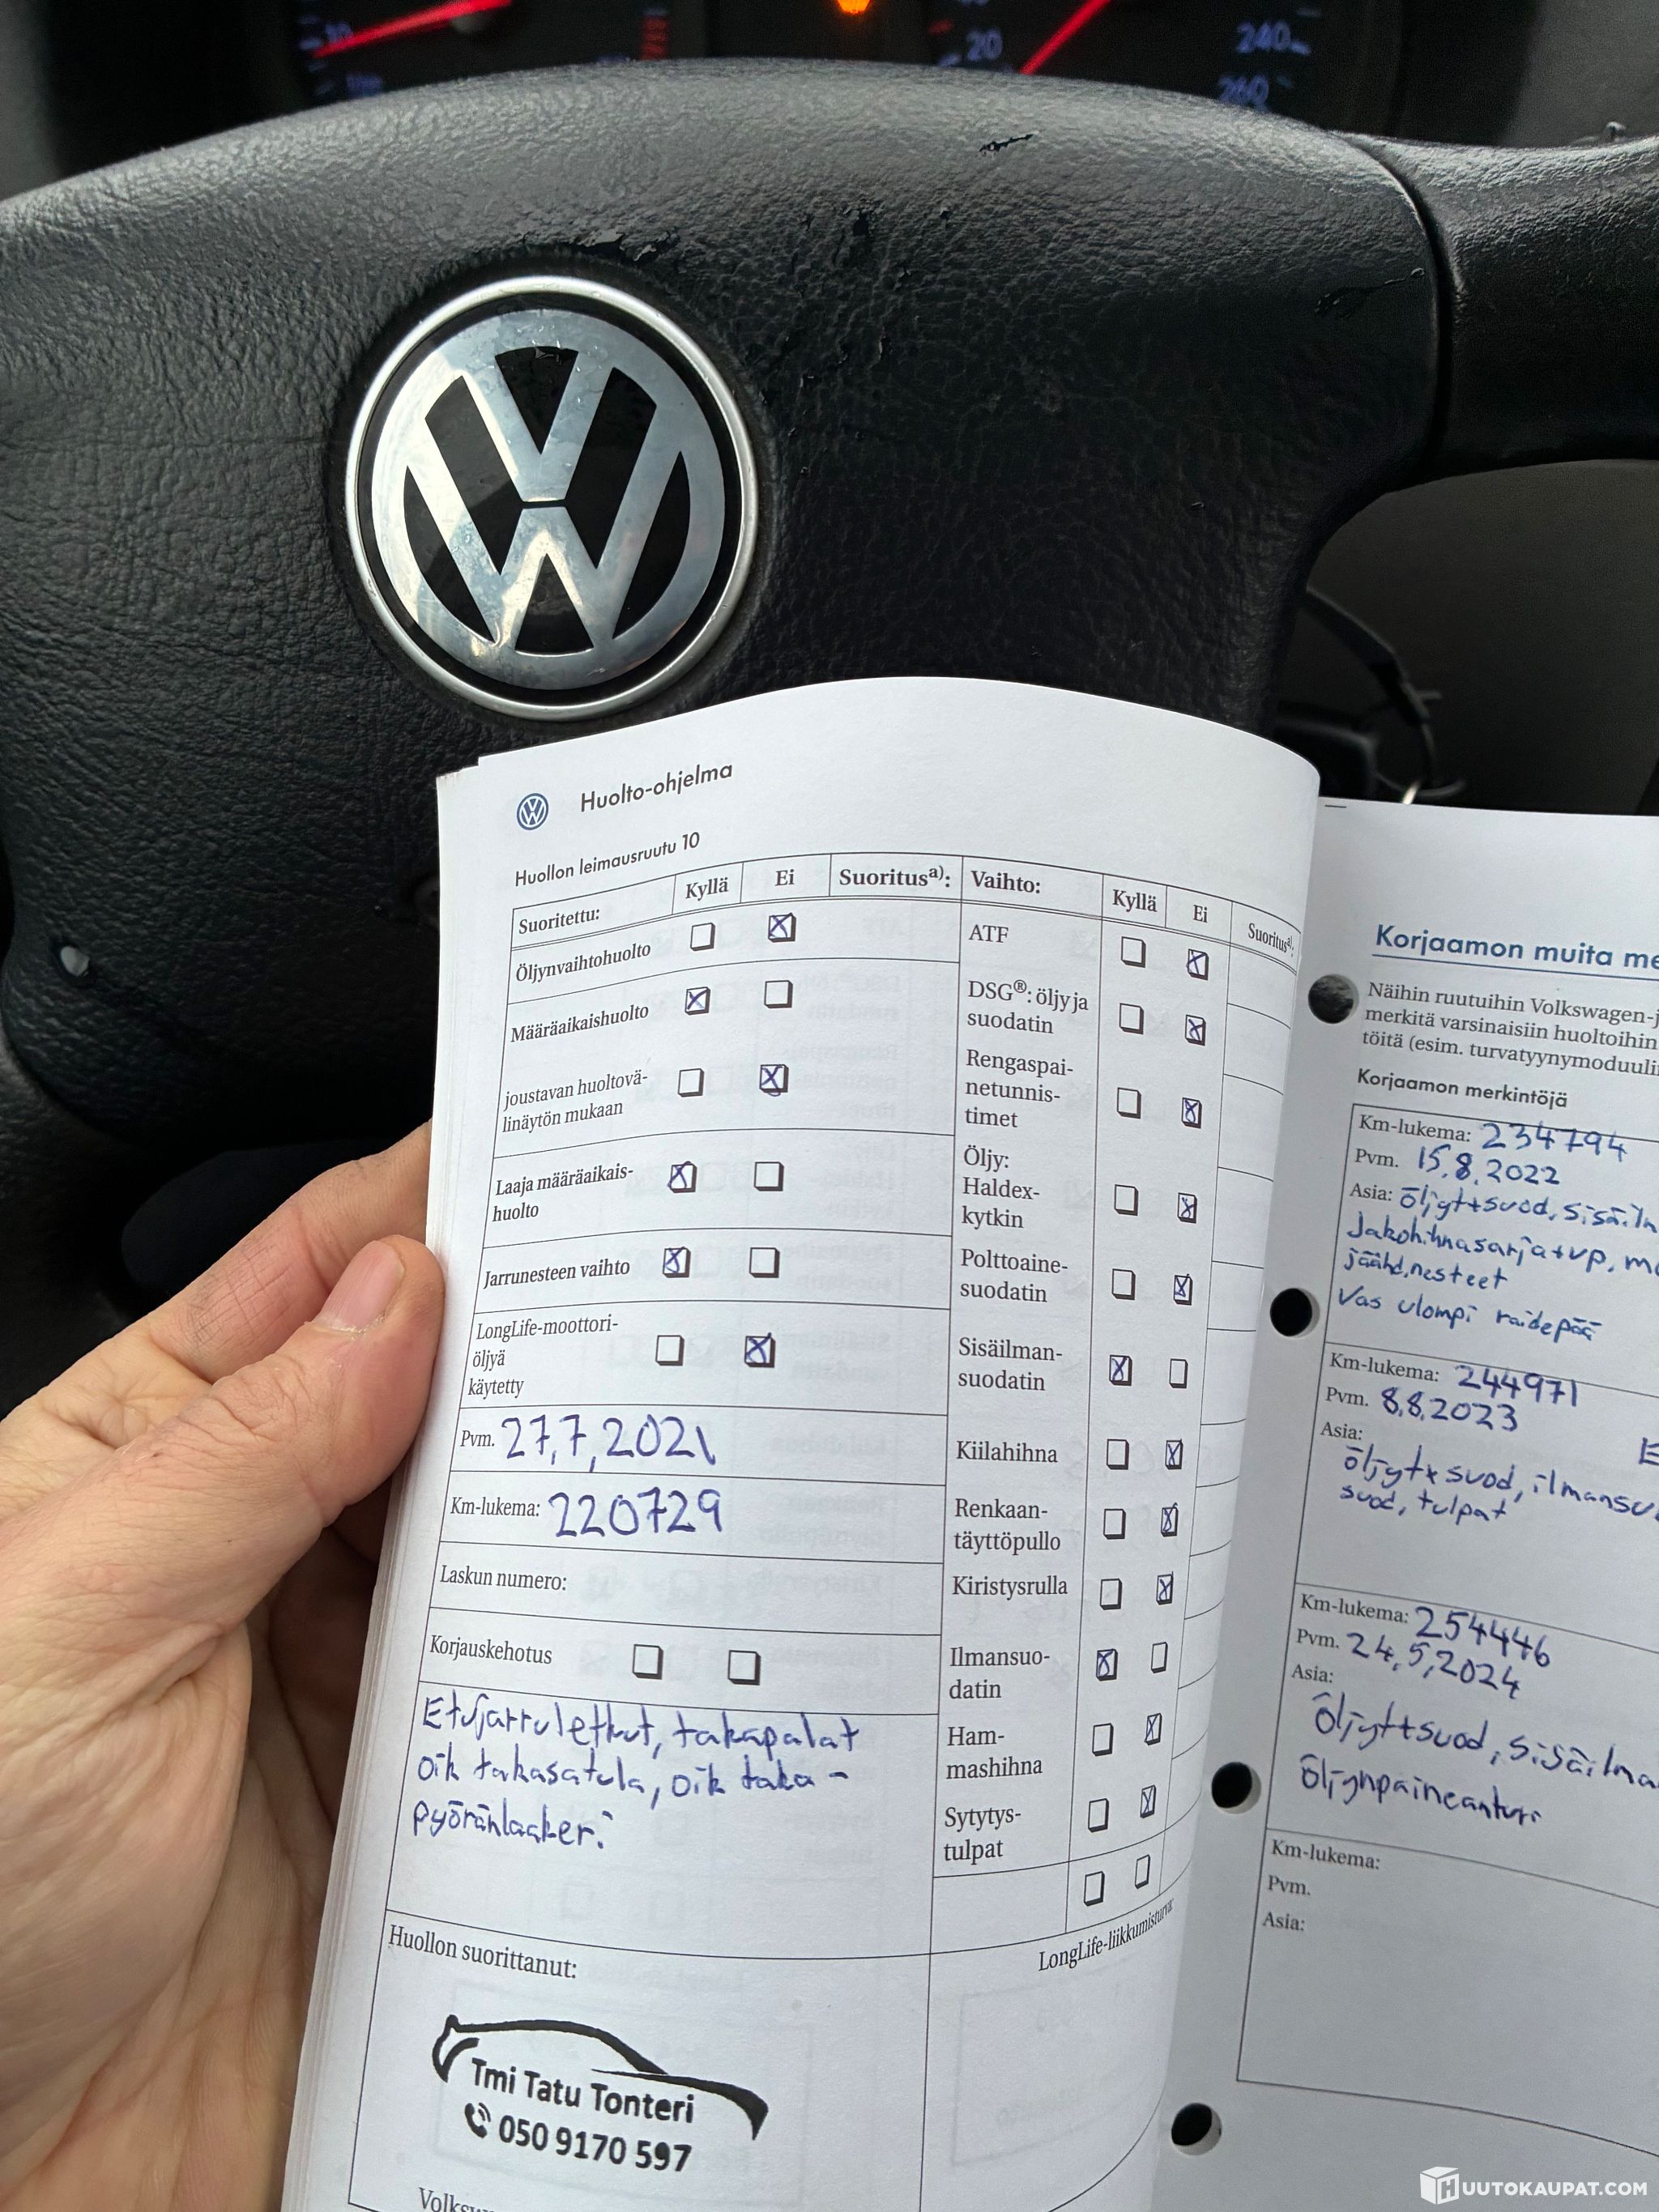 20
240
260
Huolto-ohjelma
Huollon leimausruutu 10
Suoritettu: Kyllä Ei Suoritusa):
Öljynvaihtohuolto
Määräaikaishuolto
joustavan huoltovä-
linäytön mukaan
Laaja määräaikais-
huolto
Jarrunesteen vaihto
LongLife-moottori-
öljyä
käytetty
Pvm. 27.7.2021
Km-lukema: 220729
Laskun numero:
Korjauskehotus
Etujarruletkut, takapalat
oik takasatula, oik taka-
pyöränlaakeri
Huollon suorittanut:
Tmi Tatu Tonteri
050 9170 597
Vaihto: Kyllä Ei Suoritusa):
ATF
DSG®: öljy ja
suodatin
Rengaspai-
netunnis-
timet
Öljy:
Haldex-
kytkin
Polttoaine-
suodatin
Sisäilman-
suodatin
Kiilahihna
Renkaan-
täyttöpullo
Kiristysrulla
Ilmansuo-
datin
Ham-
mashihna
Sytytys-
tulpat
LongLife-liikkumisturva:
Korjaamon muita me
Näihin ruutuihin Volkswagen-j
merkitä varsinaisiin huoltoihin
töitä (esim. turvatyynymoduulin
Korjaamon merkintöjä
Km-lukema: 234794
Pvm. 15.8.2022
Asia: öljyt+suod, sisäilm
Jakohihnasarja+vp, m
jäähd.nesteet
Vas ulompi raidepää
Km-lukema: 244971
Pvm. 8.8.2023
Asia:
öljyt+suod, ilmansu
suod, tulpat
Km-lukema: 254446
Pvm. 24.5.2024
Asia:
Öljyt+suod, sisäilma
öljynpaineanturi
Km-lukema:
Pvm.
Asia:
HUUTOKAUPAT.COM